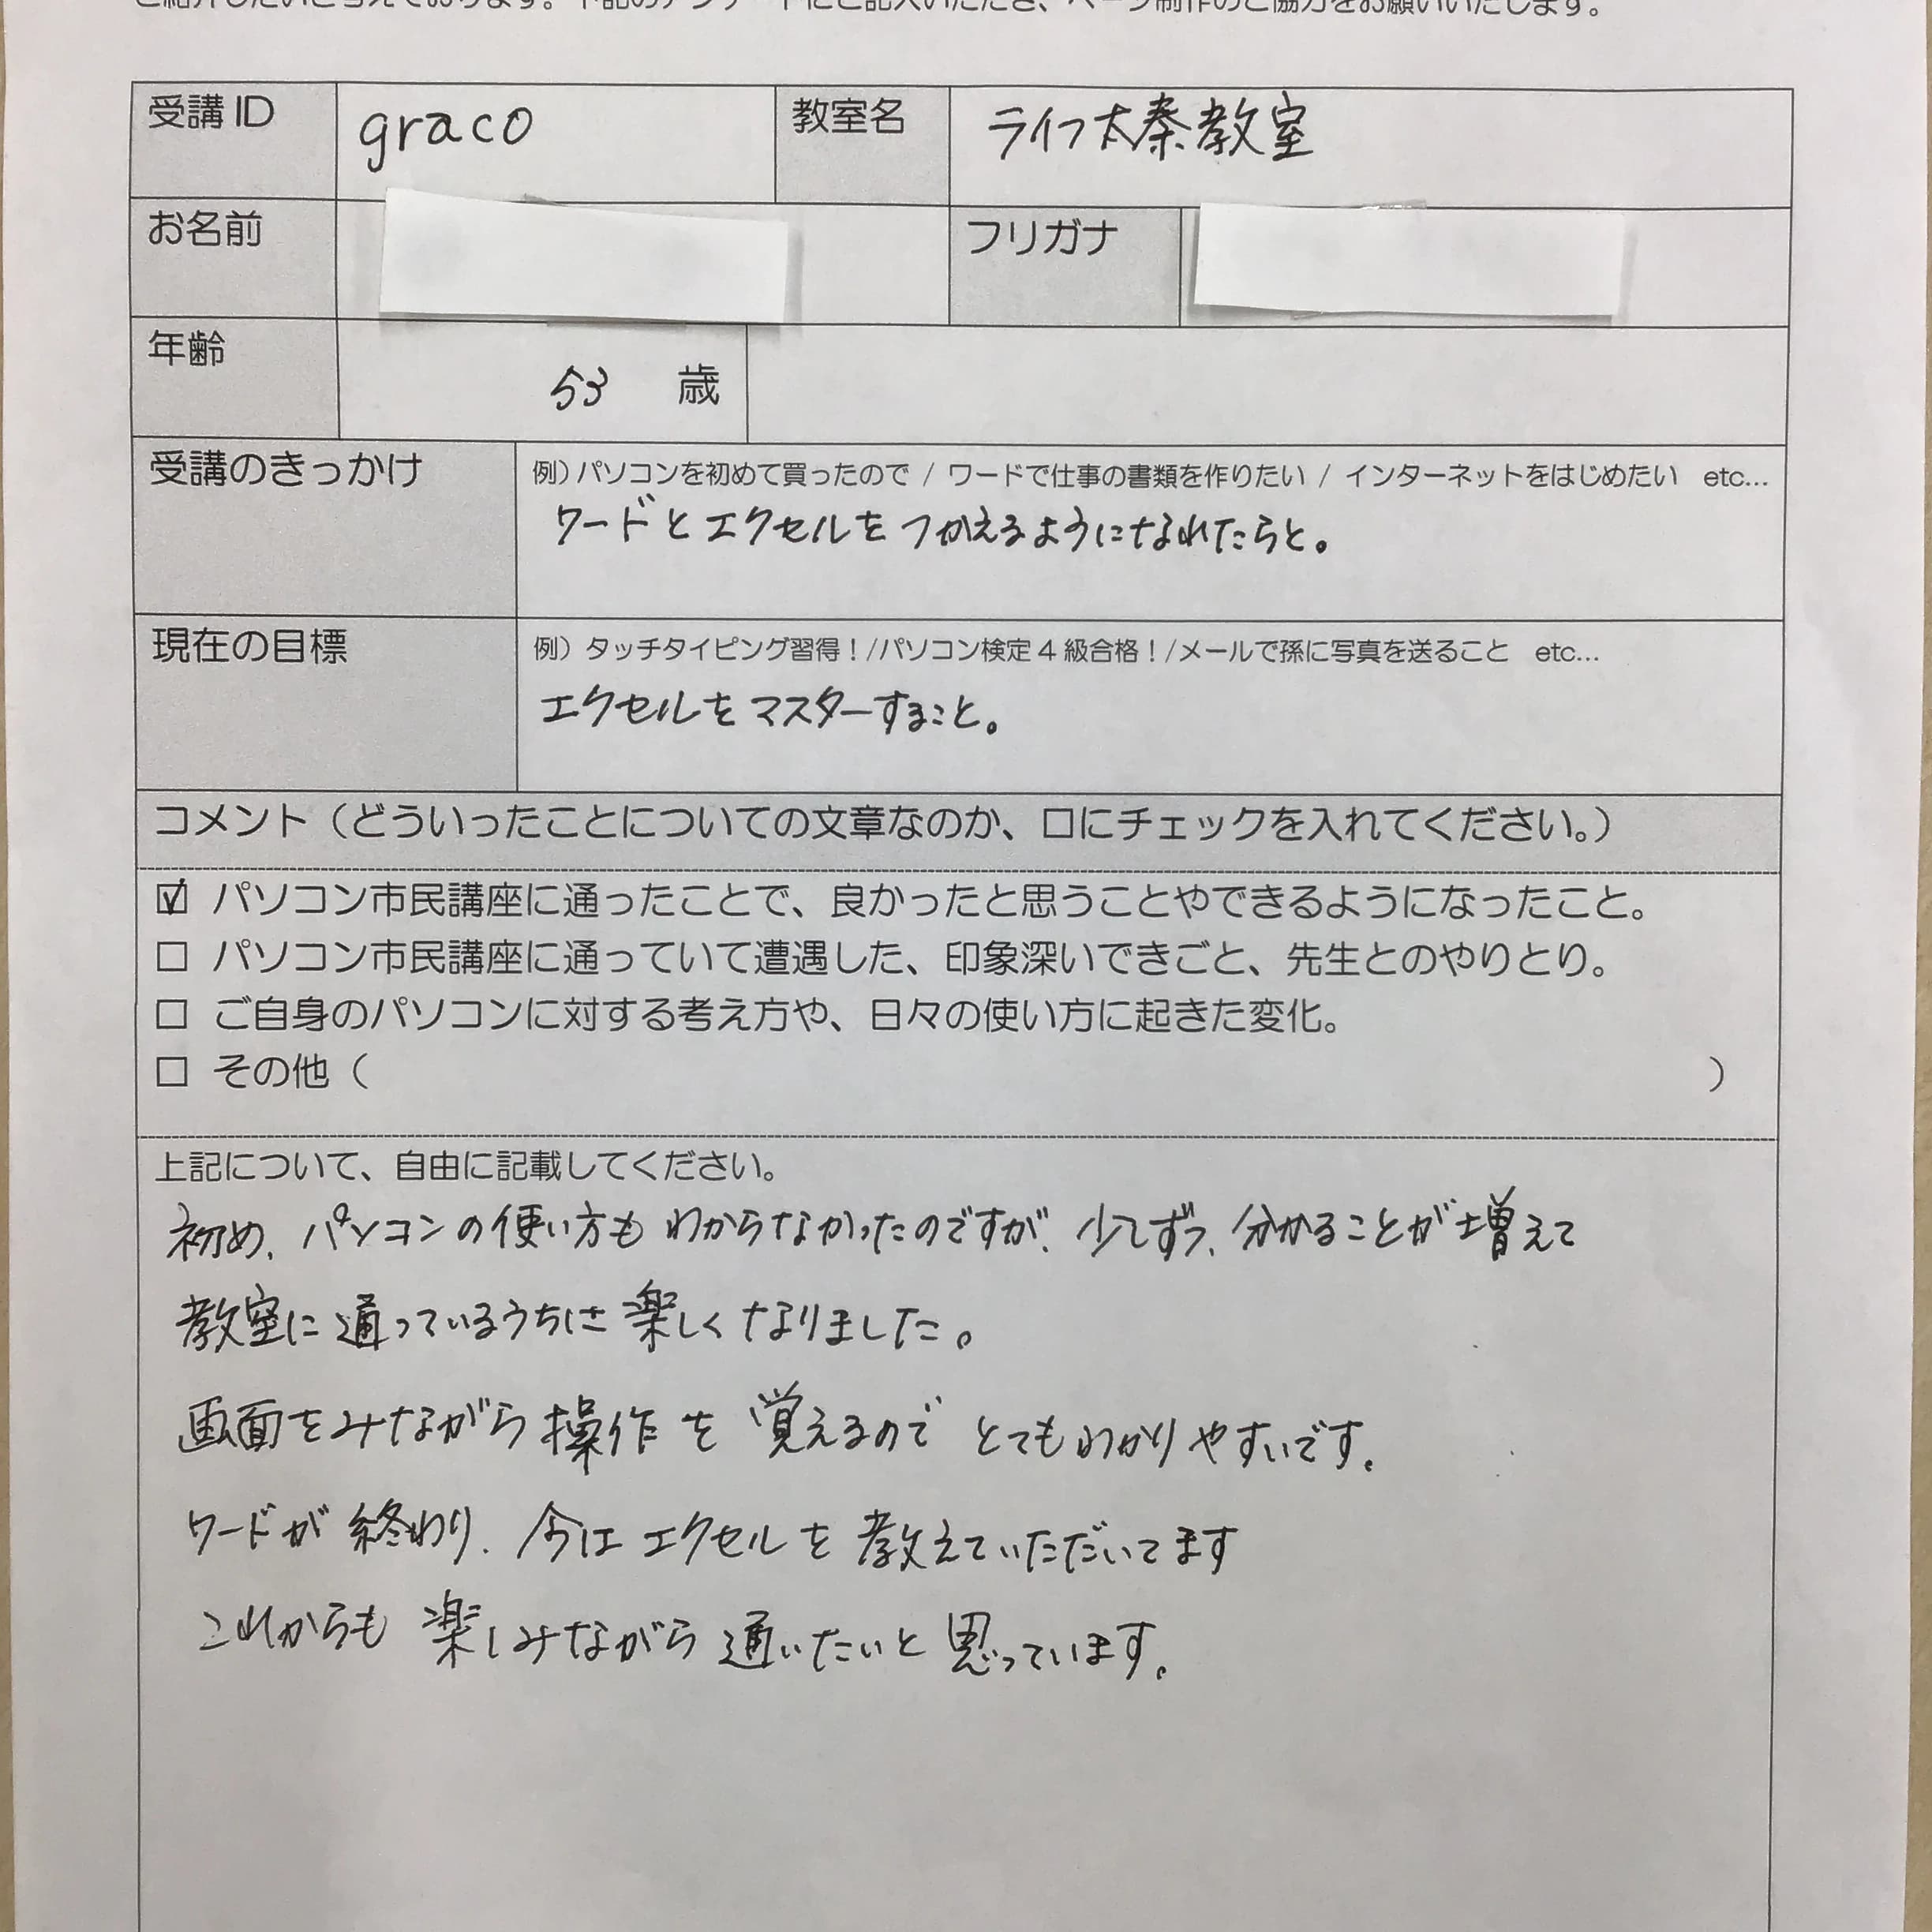 ご紹介したいと考えております。下記のアンケートにご記入いただき、ページ制作のご協力をお願いいたします。
受講ID graco 教室名 ライフ太秦教室
お名前 フリガナ
年齢 53 歳
受講のきっかけ 例)パソコンを初めて買ったので / ワードで仕事の書類を作りたい / インターネットをはじめたい etc...
ワードとエクセルをつかえるようになれたらと。
現在の目標 例) タッチタイピング習得!/パソコン検定4級合格!/メールで孫に写真を送ること etc...
エクセルをマスターすること。
コメント(どういったことについての文章なのか、口にチェックを入れてください。)
☑ パソコン市民講座に通ったことで、良かったと思うことやできるようになったこと。
□ パソコン市民講座に通っていて遭遇した、印象深いできごと、先生とのやりとり。
□ ご自身のパソコンに対する考え方や、日々の使い方に起きた変化。
□ その他( )
上記について、自由に記載してください。
初め、パソコンの使い方もわからなかったのですが、少しずつ、分かることが増えて
教室に通っているうちに楽しくなりました。
画面をみながら操作を覚えるのでとてもわかりやすいです。
ワードが終わり、今はエクセルを教えていただいてます
これからも楽しみながら通いたいと思っています。